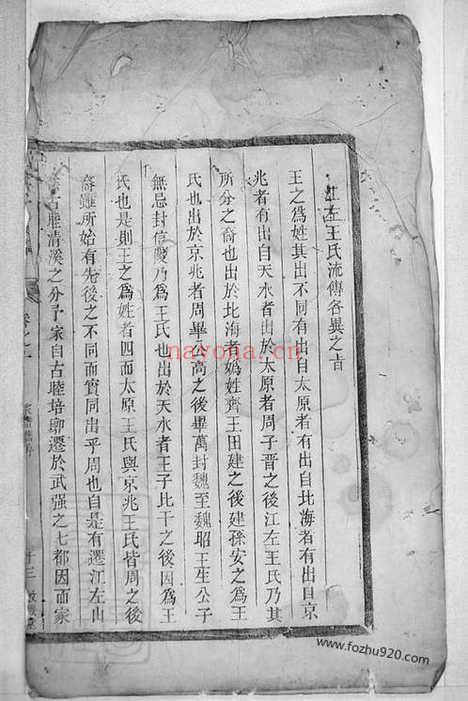 江左王氏流傳各異之旨
王之為姓其出不同有出自太原者有出自北海者有出自京
兆者有出自天水者出於太原者周子晋之後江左王氏乃其
所分之裔也出於北海者媯姓齊王田建之後建孫安之為王
氏也出於京兆者周畢公高之後畢萬封魏至魏昭王生公子
無忌封信陵乃為王氏也出於天水者王子比干之後因為王
氏也是則王之為姓者四而太原王氏與京兆王氏皆周之後
裔雖所始有先後之不同而實同出乎周也自是有遷江左山
古睦清溪之分予家自古睦培廓遷於武强之七都因而家
卷之
十三
nayona.cn
www.fozhu920.com